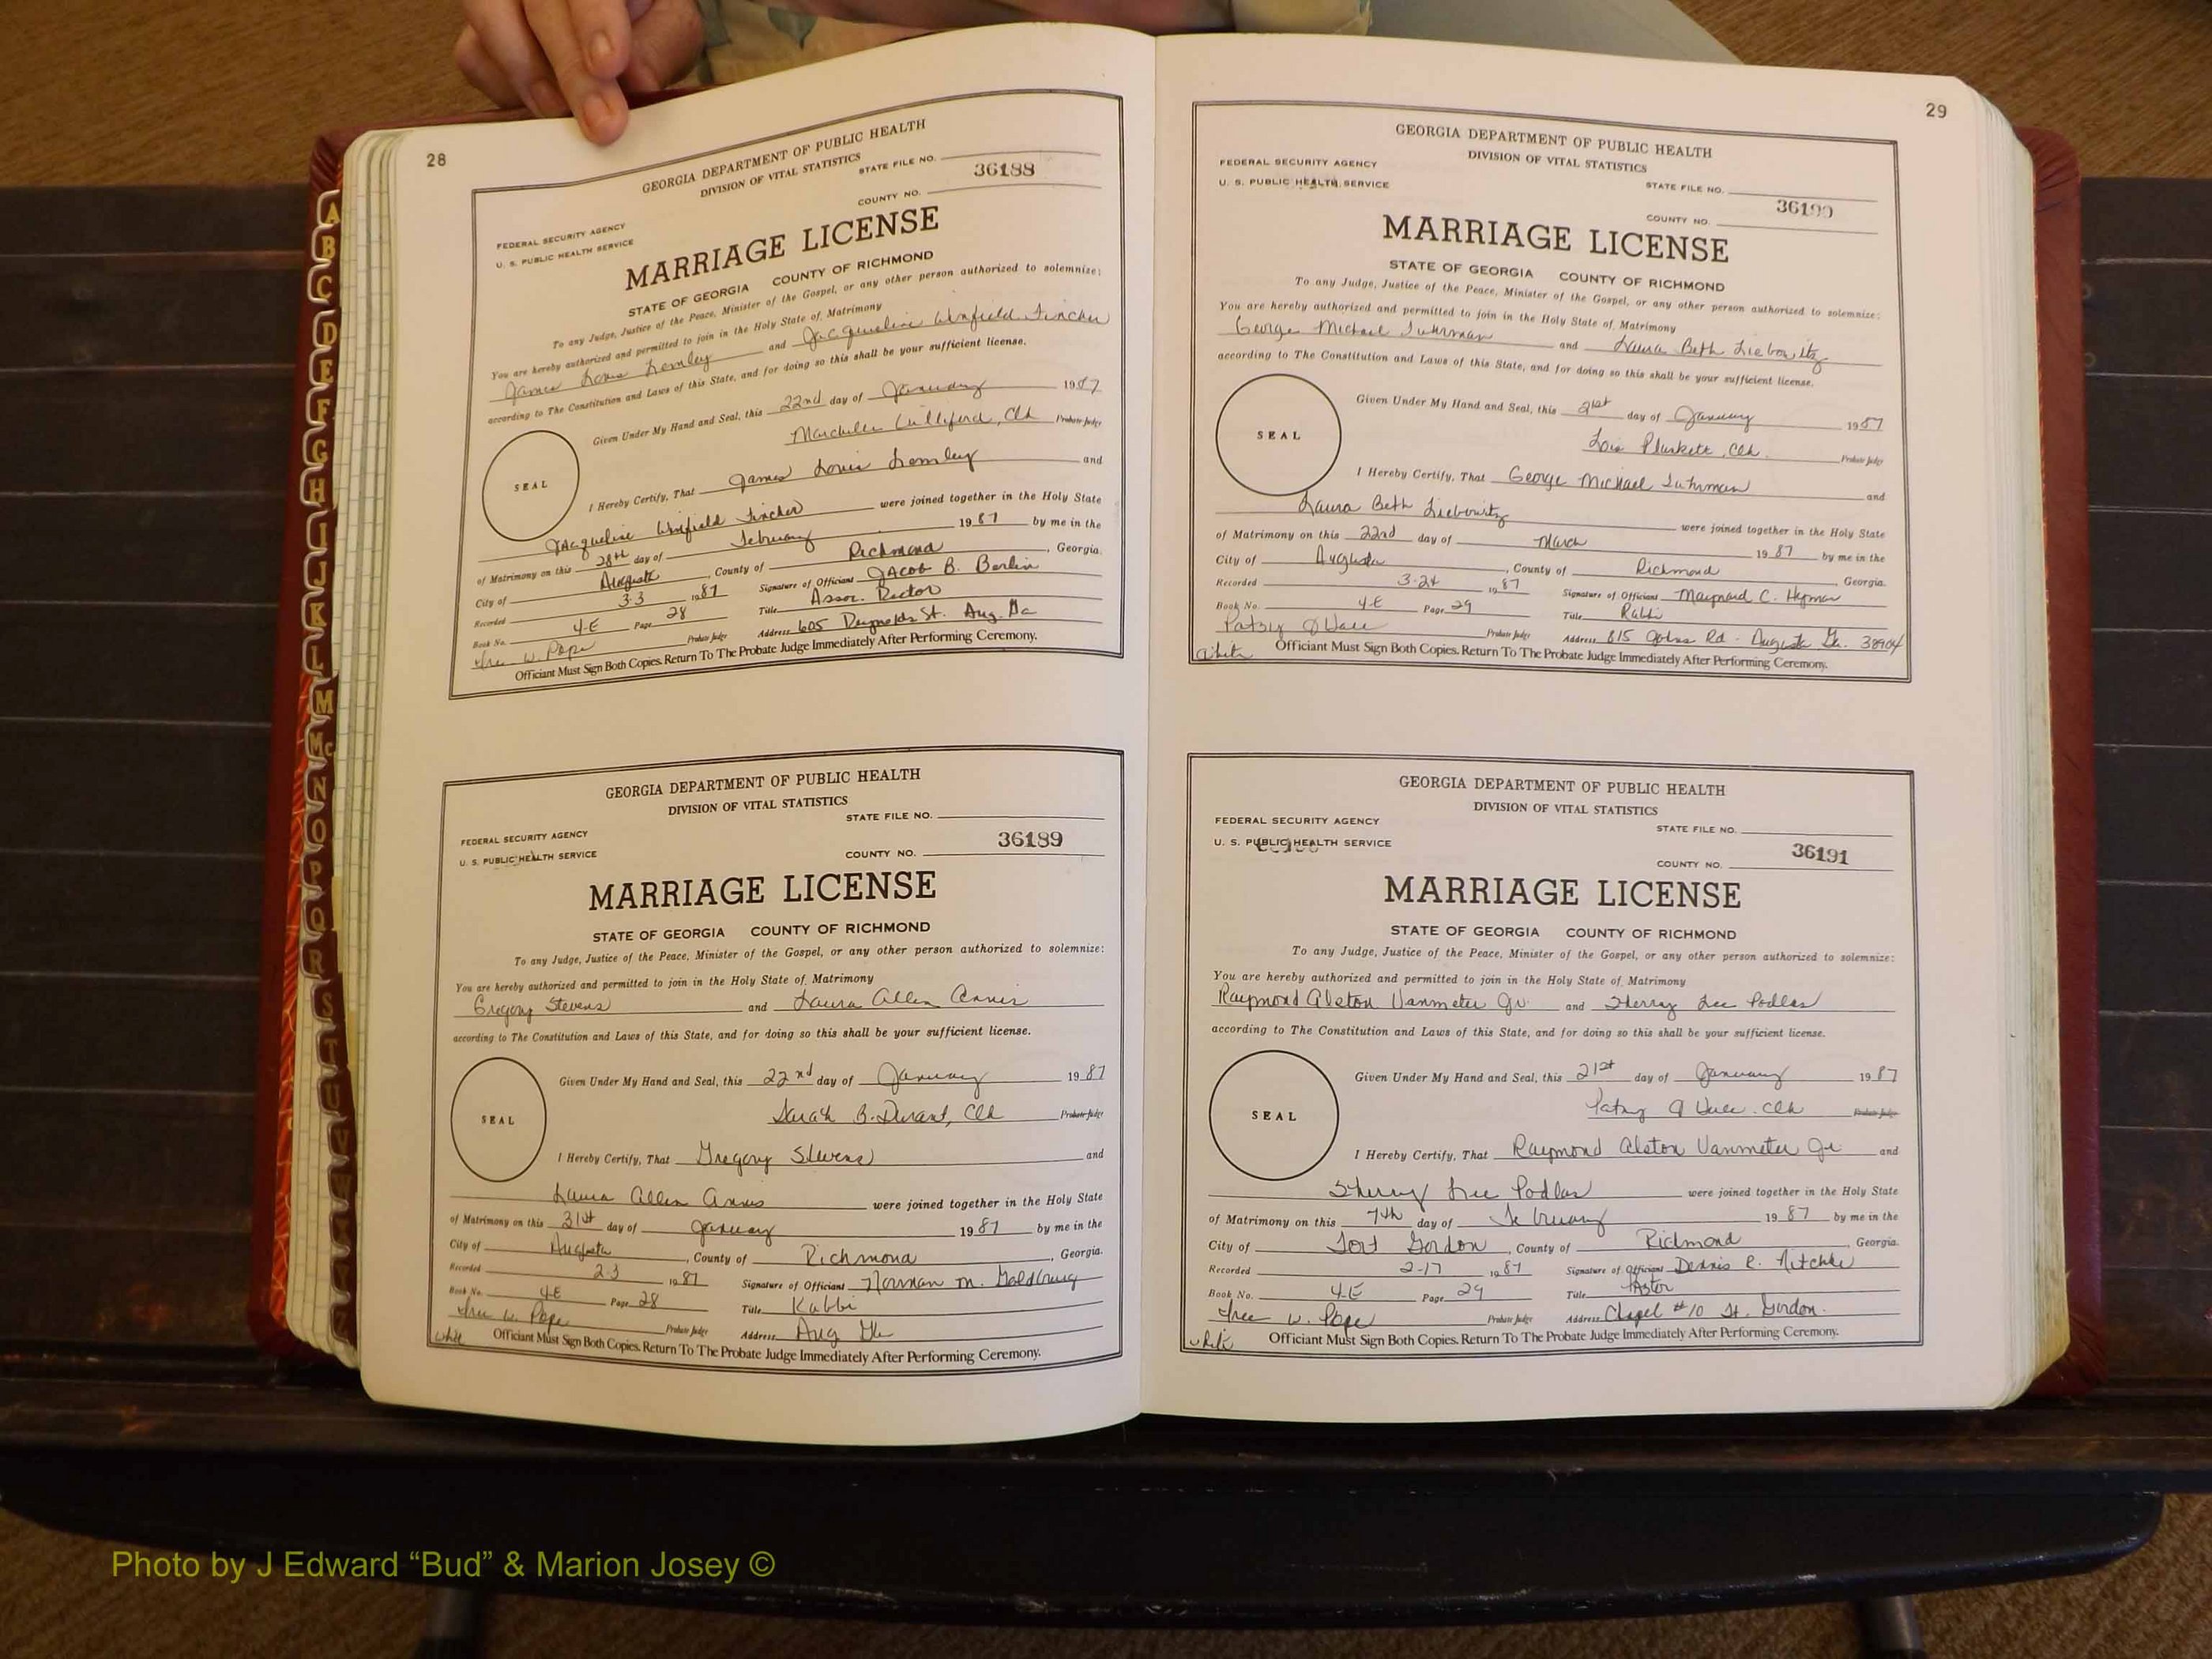 28
GEORGIA DEPARTMENT OF PUBLIC HEALTH
DIVISION OF VITAL STATISTICS
STATE FILE NO.
36188
COUNTY NO.
FEDERAL SECURITY AGENCY
U. S. PUBLIC HEALTH SERVICE
MARRIAGE LICENSE
STATE OF GEORGIA COUNTY OF RICHMOND
To any Judge, Justice of the Peace, Minister of the Gospel, or any other person authorized to solemnize:
You are hereby authorized and permitted to join in the Holy State of Matrimony
James Louis Lemley and Jacqueline Winfield Fincher
according to The Constitution and Laws of this State, and for doing so this shall be your sufficient license.
Given Under My Hand and Seal, this 22nd day of January 1987
Clk Probate Judge
SEAL
I Hereby Certify, That James Louis Lemley and
Jacqueline Winfield Fincher were joined together in the Holy State
of Matrimony on this 28th day of February 1987 by me in the
City of Augusta, County of Richmond, Georgia.
Recorded 3-3 1987 Signature of Officiant Jacob B. Berlin
Book No. 4-E Page 28 Title Assoc. Rector
W. Pope Probate Judge Address 605 Reynolds St. Aug. Ga
Officiant Must Sign Both Copies. Return To The Probate Judge Immediately After Performing Ceremony.
GEORGIA DEPARTMENT OF PUBLIC HEALTH
DIVISION OF VITAL STATISTICS
STATE FILE NO.
FEDERAL SECURITY AGENCY
36189
U. S. PUBLIC HEALTH SERVICE
COUNTY NO.
MARRIAGE LICENSE
STATE OF GEORGIA COUNTY OF RICHMOND
To any Judge, Justice of the Peace, Minister of the Gospel, or any other person authorized to solemnize:
You are hereby authorized and permitted to join in the Holy State of Matrimony
Gregory Stevens and Laura Allen Annis
according to The Constitution and Laws of this State, and for doing so this shall be your sufficient license.
Given Under My Hand and Seal, this 22nd day of January 1987
Sarah B. Durant, Clk Probate Judge
SEAL
I Hereby Certify, That Gregory Stevens and
Laura Allen Annis were joined together in the Holy State
of Matrimony on this 31st day of January 1987 by me in the
City of Augusta, County of Richmond, Georgia.
Recorded 2-3 1987 Signature of Officiant Norman M. Goldburg
Book No. 4E Page 28 Title Rabbi
W. Pope Probate Judge Address Aug Ga
white Officiant Must Sign Both Copies. Return To The Probate Judge Immediately After Performing Ceremony.
29
GEORGIA DEPARTMENT OF PUBLIC HEALTH
DIVISION OF VITAL STATISTICS
FEDERAL SECURITY AGENCY
U. S. PUBLIC HEALTH SERVICE
STATE FILE NO.
36190
COUNTY NO.
MARRIAGE LICENSE
STATE OF GEORGIA COUNTY OF RICHMOND
To any Judge, Justice of the Peace, Minister of the Gospel, or any other person authorized to solemnize:
You are hereby authorized and permitted to join in the Holy State of Matrimony
George Michael Fuhrman and Laura Beth Liebowitz
according to The Constitution and Laws of this State, and for doing so this shall be your sufficient license.
Given Under My Hand and Seal, this 21st day of January 1987
Lois Plunkett, Clk. Probate Judge
SEAL
I Hereby Certify, That George Michael Fuhrman and
Laura Beth Liebowitz were joined together in the Holy State
of Matrimony on this 22nd day of March 1987 by me in the
City of Augusta, County of Richmond, Georgia.
Recorded 3-24 1987 Signature of Officiant Maynard C. Hyman
Book No. 4-E Page 29 Title Rabbi
Patsy Probate Judge Address 815 Johns Rd. Augusta Ga. 30904
white Officiant Must Sign Both Copies. Return To The Probate Judge Immediately After Performing Ceremony.
GEORGIA DEPARTMENT OF PUBLIC HEALTH
DIVISION OF VITAL STATISTICS
FEDERAL SECURITY AGENCY
STATE FILE NO.
U. S. PUBLIC HEALTH SERVICE
36191
COUNTY NO.
MARRIAGE LICENSE
STATE OF GEORGIA COUNTY OF RICHMOND
To any Judge, Justice of the Peace, Minister of the Gospel, or any other person authorized to solemnize:
You are hereby authorized and permitted to join in the Holy State of Matrimony
Raymond Alston Vanmeter Jr. and Sherry Lee Podlas
according to The Constitution and Laws of this State, and for doing so this shall be your sufficient license.
Given Under My Hand and Seal, this 21st day of January 1987
Patsy Clk Probate Judge
SEAL
I Hereby Certify, That Raymond Alston Vanmeter Jr and
Sherry Lee Podlas were joined together in the Holy State
of Matrimony on this 7th day of February 1987 by me in the
City of Fort Gordon, County of Richmond, Georgia.
Recorded 2-17 1987 Signature of Officiant Dennis R. Nitchke
Book No. 4-E Page 29 Title Pastor
W. Pope Probate Judge Address Chapel #10 Ft. Gordon.
white Officiant Must Sign Both Copies. Return To The Probate Judge Immediately After Performing Ceremony.
A
B
C
D
E
F
G
H
I
J
K
L
M
Mc
N
O
P
Q
R
S
T
U
V
W
Z
Photo by J Edward “Bud” & Marion Josey ©